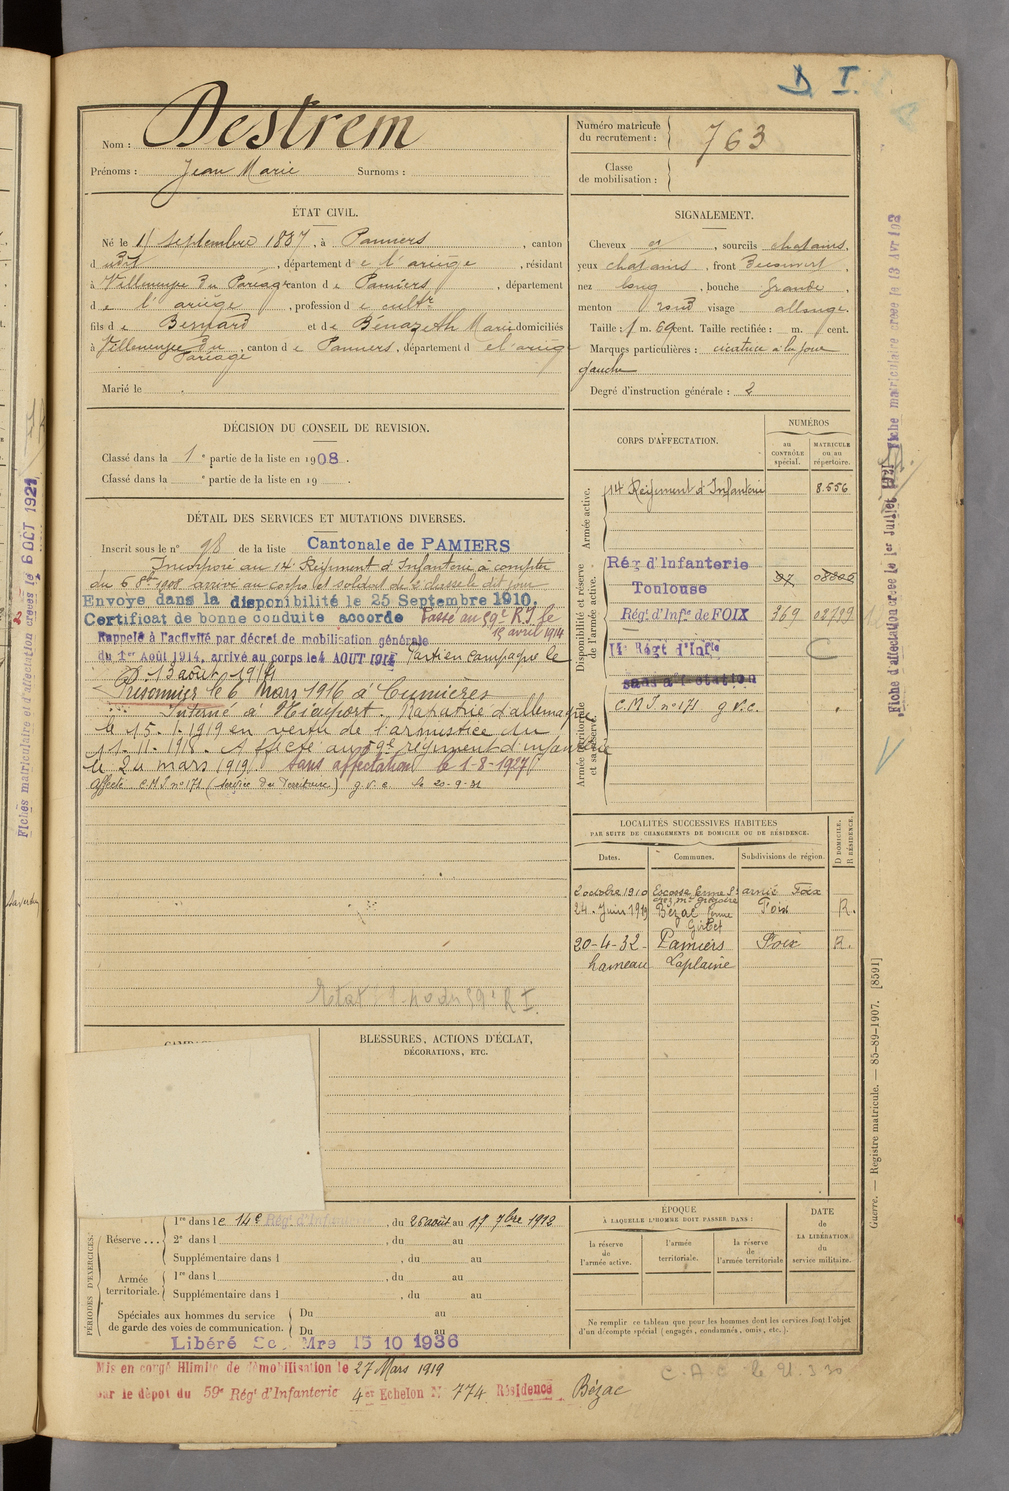 D I.
Nom : Destrem
Prénoms : Jean Marie Surnoms :
Numéro matricule du recrutement : 763
Classe de mobilisation :
ÉTAT CIVIL.
Né le 11 septembre 1887, à Pamiers, canton
dudit, département de l'ariège, résidant
à Villeneuve du Pariage canton de Pamiers, département
de l'ariège, profession de cultr
fils de Bernard et de Bénazeth Marie domiciliés
à Villeneuve du Pariage, canton de Pamiers, département de l'ariège
Marié le
SIGNALEMENT.
Cheveux et, sourcils chatains,
yeux chatains, front Découvert,
nez long, bouche Grande,
menton rond visage allongé.
Taille : 1 m. 69 cent. Taille rectifiée : m. cent.
Marques particulières : cicatrice à la joue
gauche
Degré d'instruction générale : 2
DÉCISION DU CONSEIL DE REVISION.
Classé dans la 1e partie de la liste en 1908.
Classé dans la e partie de la liste en 19 .
DÉTAIL DES SERVICES ET MUTATIONS DIVERSES.
Inscrit sous le n° 98 de la liste Cantonale de PAMIERS
Incorporé au 14e Régiment d'Infanterie à compter
du 6 8bre 1908 arrivé au corps et soldat de 2e classe le dit jour
Envoyé dans la disponibilité le 25 Septembre 1910.
Certificat de bonne conduite accordé Passé au 59e R.I. le
15 avril 1914
Rappelé à l'activité par décret de mobilisation générale
du 1er Août 1914, arrivé au corps le 4 AOUT 1914 Parti en campagne le
13 août 1914
Prisonnier le 6 Mars 1916 à Cumières
Interné à Rapatrié d'allemagne
le 15.1.1919 en vertu de l'armistice du
11.11.1918. Affecté au 59e régiment d'infanterie
le 24 mars 1919. Sans affectation le 1-8-1927
Affecté C.M.I. n° 171 (Service du Territoire) g.v.c. le 20-9-32
Etat
CORPS D'AFFECTATION.
NUMÉROS
au CONTRÔLE spécial.
MATRICULE ou au répertoire.
Armée active.
14e Régiment d'Infanterie 8.556
Disponibilité et réserve de l'armée active.
Rég. d'Infanterie
Toulouse
Régt d'Infie de FOIX 369
14e Régt d'Infie
sans affectation
Armée territoriale et sa réserve.
C.M.I. n° 171 g.v.c.
LOCALITÉS SUCCESSIVES HABITÉES
PAR SUITE DE CHANGEMENTS DE DOMICILE OU DE RÉSIDENCE.
Dates. Communes. Subdivisions de région.
D DOMICILE. R RÉSIDENCE.
2 octobre 1910 Escosse ferme St arnié Foix
chez Mr Grégoire
24. Juin 1919 Bézac ferme Foix R.
20-4-32 Pamiers Foix R.
hameau Laplaine
BLESSURES, ACTIONS D'ÉCLAT,
DÉCORATIONS, ETC.
PÉRIODES D'EXERCICES:
Réserve ... 1re dans le 14e Régt d'Infanterie, du 26 août au 17 7bre 1912
2e dans l , du au
Supplémentaire dans l , du au
Armée territoriale. 1re dans l , du au
Supplémentaire dans l , du au
Spéciales aux hommes du service de garde des voies de communication. Du au
Du au
Libéré Mre 15 10 1936
ÉPOQUE
À LAQUELLE L'HOMME DOIT PASSER DANS :
la réserve de l'armée active.
l'armée territoriale.
la réserve de l'armée territoriale
DATE de LA LIBÉRATION du service militaire.
Ne remplir ce tableau que pour les hommes dont les services font l'objet
d'un décompte spécial (engagés, condamnés, omis, etc.).
Mis en congé illimité de démobilisation le 27 Mars 1919
par le dépôt du 59e Régt d'Infanterie 4er Echelon N° 774 Résidence Bézac
Guerre. — Registre matricule. — 85-89-1907. [8591]
Fiche matriculaire créée le 13 Avr 192
Fiche d'affectation créée le 1er Juillet
Fiches matriculaire et d'affectation créées le 6 OCT 1921